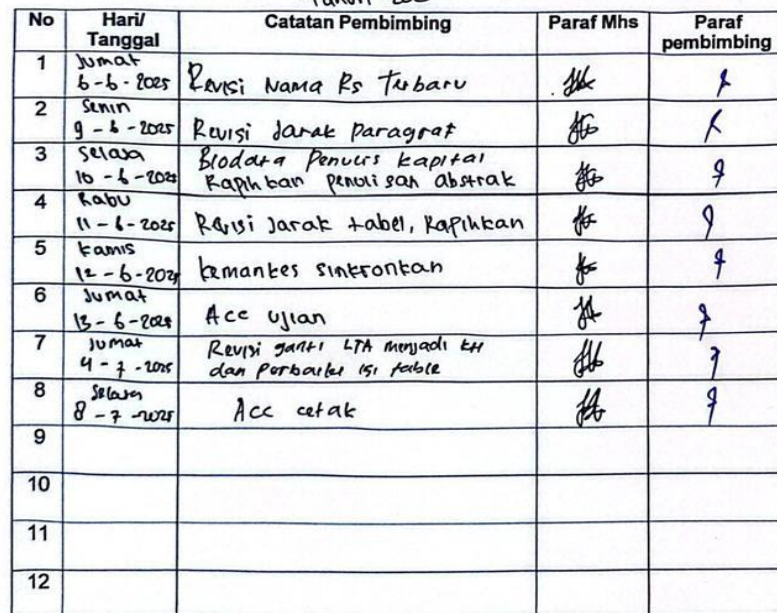 No Hari/ Tanggal Catatan Pembimbing Paraf Mhs Paraf pembimbing
1 Jumat
6-6-2025 Revisi Nama Rs Terbaru
2 Senin
9-6-2025 Revisi Jarak Paragraf
3 Selasa Biodata Penulis kapital
10-6-2025 Rapihkan penulisan abstrak
4 Rabu
11-6-2025 Revisi Jarak tabel, Rapihkan
5 Kamis
12-6-2025 kemankes sinkronkan
6 Jumat
13-6-2025 Acc ujian
7 Jumat Revisi ganti LTA menjadi
4-7-2025 dan Perbaiki isi table
8 Selasa
8-7-2025 Acc cetak
9
10
11
12